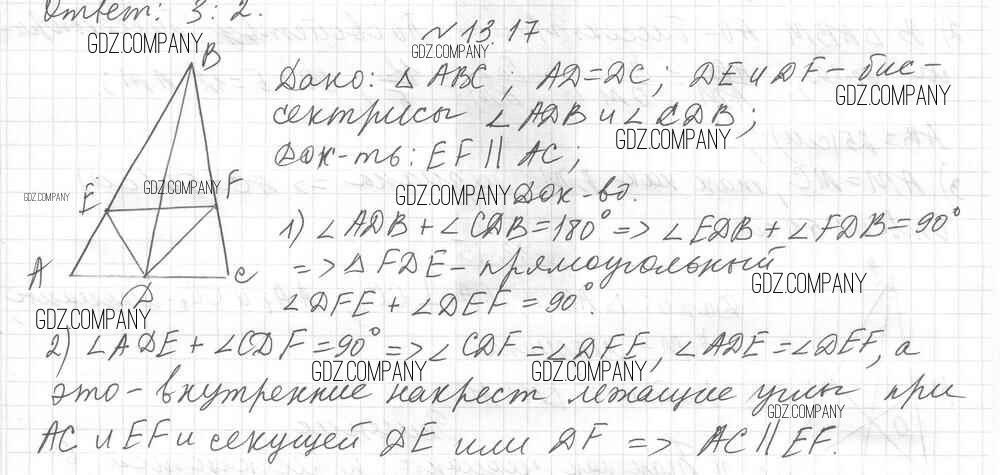 Ответ: 3 : 2.
№ 13.17
GDZ.COMPANY
GDZ.COMPANY
B
Дано: △ ABC ; AD=DC ; DE и DF – бис-
GDZ.COMPANY
сектрисы ∠ ADB и ∠ CDB ;
GDZ.COMPANY
Док-ть: EF || AC ;
GDZ.COMPANY
GDZ.COMPANY
GDZ.COMPANY
Док-во.
E
F
1) ∠ ADB + ∠ CDB = 180° => ∠ EDB + ∠ FDB = 90°
=> △ FDE – прямоугольный
A
C
GDZ.COMPANY
D
∠ DFE + ∠ DEF = 90°.
GDZ.COMPANY
2) ∠ ADE + ∠ CDF = 90° => ∠ CDF = ∠ DFE, ∠ ADE = ∠ DEF, а
GDZ.COMPANY
GDZ.COMPANY
это – внутренние накрест лежащие углы при
GDZ.COMPANY
AC и EF и секущей DE или DF => AC || EF.